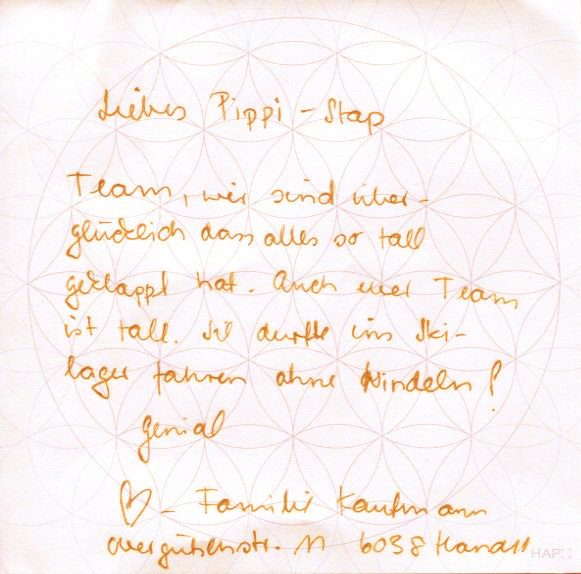 Liebes Pippi-Stop
Team, wir sind über-
glücklich dass alles so toll
geklappt hat. Auch euer Team
ist toll. Sie durfte ins Ski-
lager fahren ohne Windeln!
genial
♡ - Familie Kaufmann
11 6038 Honau